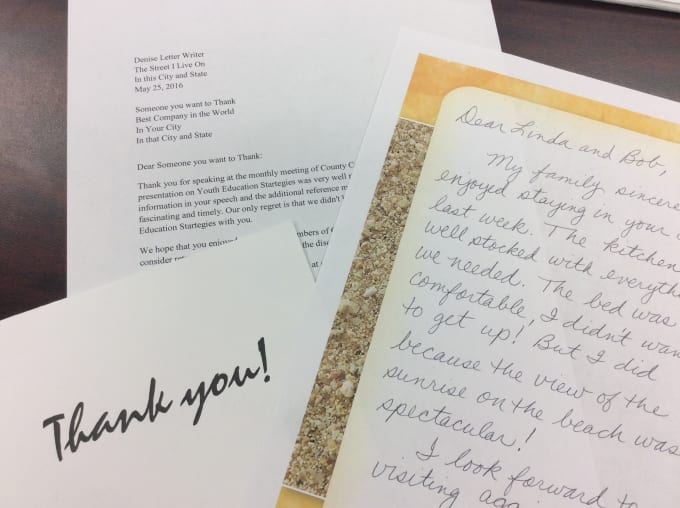 Denise Letter Writer
The Street I Live On
In this City and State
May 25, 2016
Someone you want to Thank
Best Company in the World
In Your City
In that City and State
Dear Someone you want to Thank:
Thank you for speaking at the monthly meeting of County
presentation on Youth Education Startegies was very well
information in your speech and the additional reference
fascinating and timely. Our only regret is that we didn't
Education Startegies with you.
We hope that you enjoy
consider
Thank you!
Dear Linda and Bob,
My family
enjoyed staying in your
last week. The kitchen
well stocked with
we needed. The bed was
comfortable, I didn't
to get up! But I did
because the view of the
sunrise on the beach was
spectacular!
I look forward to
visiting